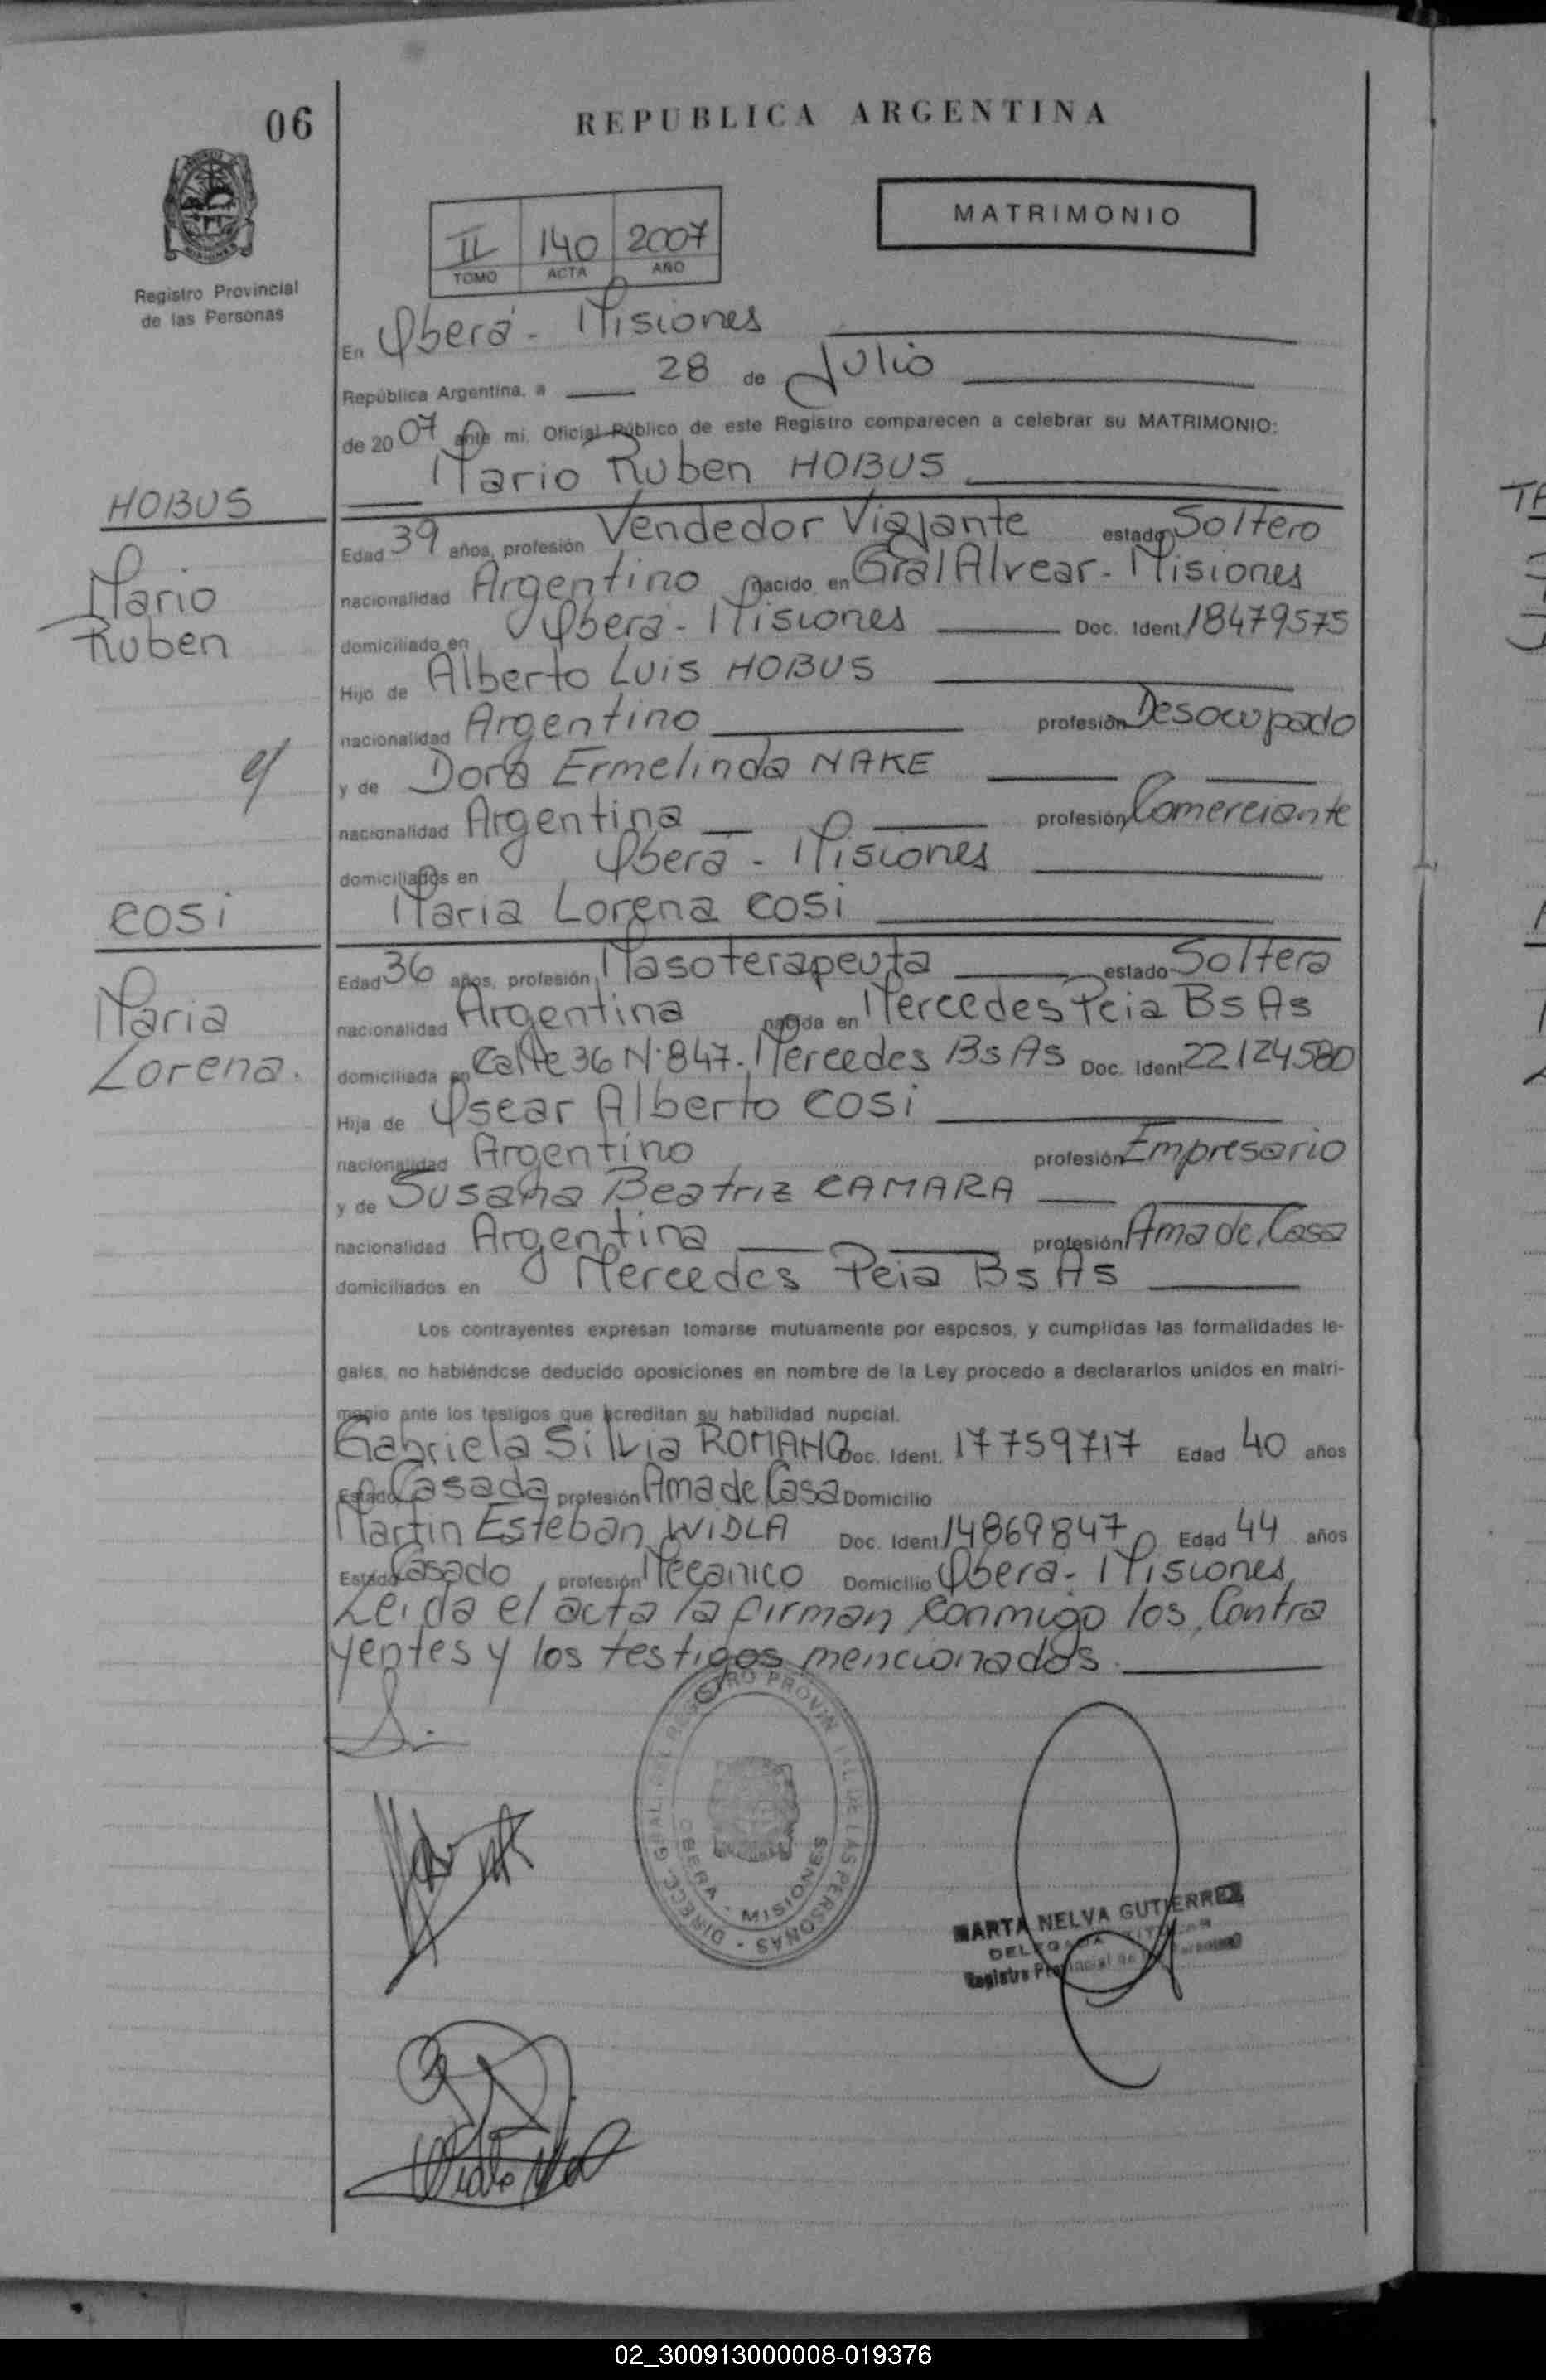 06
REPUBLICA ARGENTINA
MATRIMONIO
II 140 2007
TOMO ACTA AÑO
Registro Provincial
de las Personas
En Oberá - Misiones
República Argentina, a 28 de Julio
de 2007 ante mi, Oficial Público de este Registro comparecen a celebrar su MATRIMONIO:
Mario Ruben HOBUS
HOBUS
Mario
Ruben
Edad 39 años, profesión Vendedor Viajante estado Soltero
nacionalidad Argentino nacido en Gral Alvear - Misiones
domiciliado en Oberá - Misiones Doc. Ident 18479575
Hijo de Alberto Luis HOBUS
nacionalidad Argentino profesión Desocupado
y de Dora Ermelinda NAKE
nacionalidad Argentina profesión Comerciante
domiciliados en Oberá - Misiones
Maria Lorena COSI
c/
COSI
Maria
Lorena.
Edad 36 años, profesión Masoterapeuta estado Soltera
nacionalidad Argentina nacida en Mercedes Pcia Bs As
domiciliada en Calle 36 N° 847. Mercedes Bs As Doc. Ident 22124580
Hija de Oscar Alberto COSI
nacionalidad Argentino profesión Empresario
y de Susana Beatriz CAMARA
nacionalidad Argentina profesión Ama de Casa
domiciliados en Mercedes Pcia Bs As
Los contrayentes expresan tomarse mutuamente por esposos, y cumplidas las formalidades le-
gales, no habiéndose deducido oposiciones en nombre de la Ley procedo a declararlos unidos en matri-
monio ante los testigos que acreditan su habilidad nupcial.
Gabriela Silvia ROMANO Doc. Ident. 17759717 Edad 40 años
Estado Casada profesión Ama de Casa Domicilio
Martin Esteban WIDLA Doc. Ident 14869847 Edad 44 años
Estado Casado, profesión Mecanico Domicilio Oberá - Misiones
Leida el acta la firman conmigo los Contra
yentes y los testigos mencionados.
DIRECC. GRAL. DEL REGISTRO PROVINCIAL DE LAS PERSONAS
OBERA - MISIONES
MARTA NELVA GUTIERREZ
DELEGADA TITULAR
Registro Provincial de las Personas
02_300913000008-019376